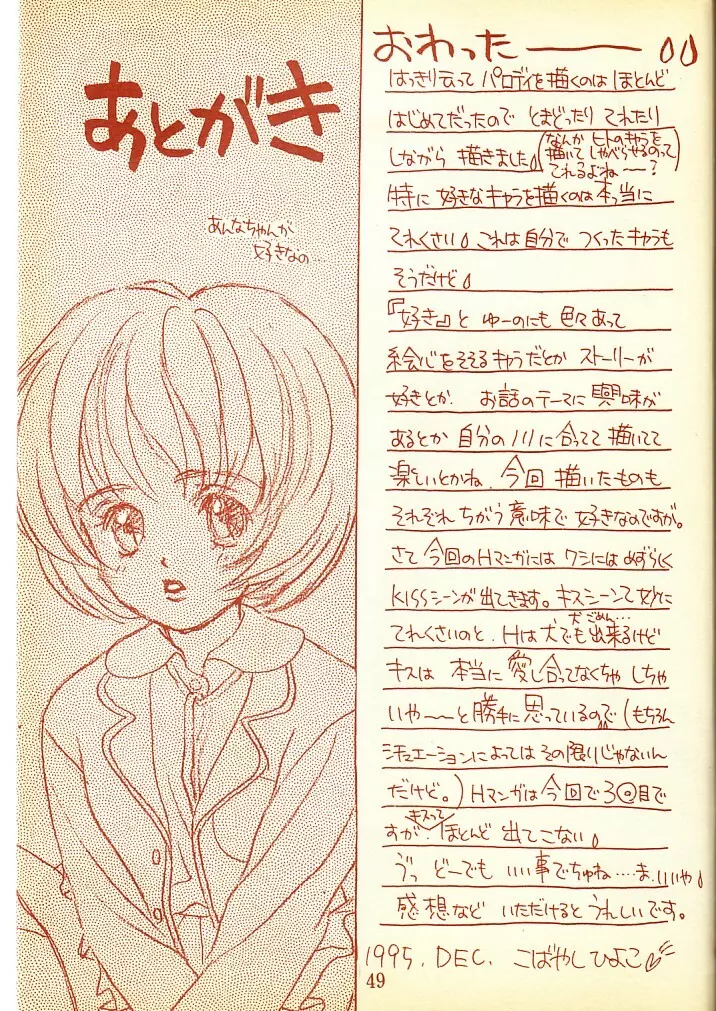 あとがき
あんなちゃんが
好きなの…
おわったーーー
はっきり云って パロディを描くのは ほとんど
はじめてだったので とまどったり てれたり
しながら 描きました
(なんか ヒトのキャラを
描いて しゃべらせるのって
てれるよね〜〜?)
特に 好きなキャラを描くのは本っ当に
てれくさい これは自分で つくったキャラも
そうだけど
『好き』と ゆーのにも 色々あって
絵心をそそるキャラだとか ストーリーが
好きとか. お話のテーマに 興味が
あるとか 自分のノリに合ってて 描いてて
楽しいとかね. 今回 描いたものも
それぞれ ちがう意味で 好きなのですが。
さて 今回のHマンガには ワシには めずらしく
KISSシーンが出てきます。キスシーンて妙に
てれくさいのと. Hは犬でも出来るけど
犬ごめん…
キスは 本当に 愛し合ってなくちゃ しちゃ
いや〜〜と勝手に思っているので (もちろん
シチュエーションによっては その限りじゃないん
だけど。) Hマンガは今回で3回目で
すが. キスって ほとんど 出てこない
うっ どーでも いい事でちゅね……ま.いいや
感想など いただけると うれしいです。
1995. DEC. こばやしひよこ
49